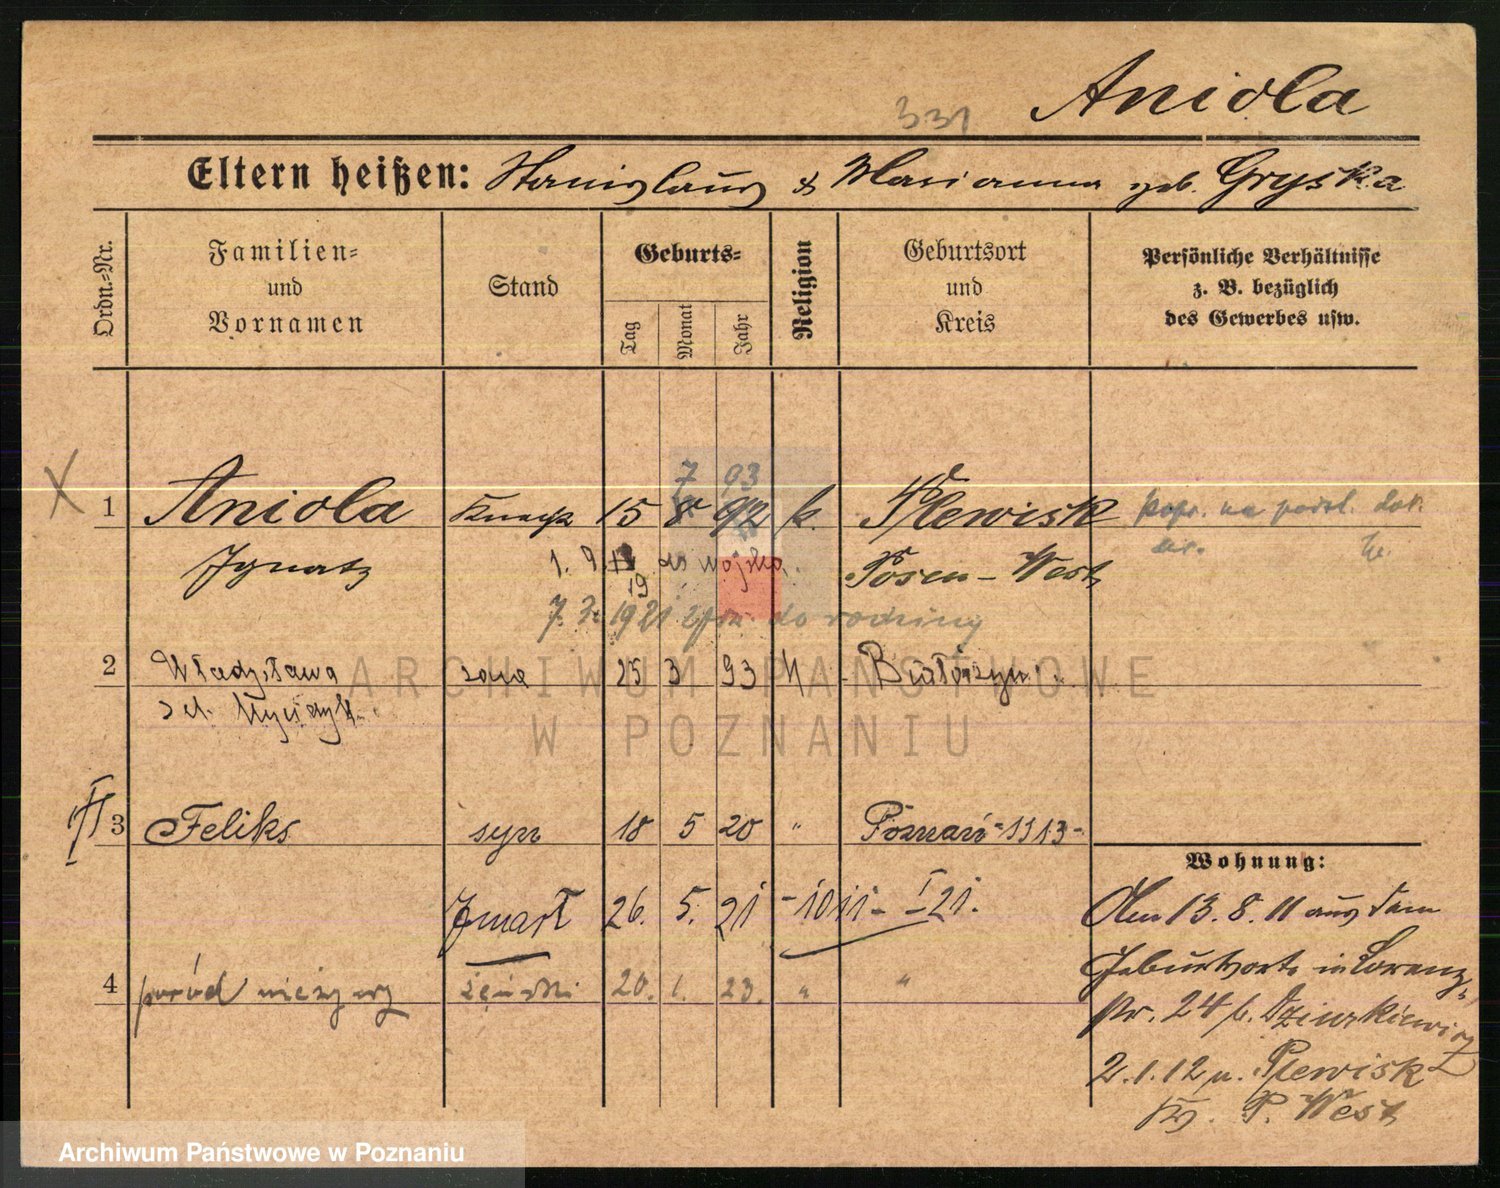 Aniola
331
Eltern heißen: Stanislaus & Marianna geb. Gryska
Ordn.-Nr.
Familien-
und
Vornamen
Stand
Geburts-
Tag
Monat
Jahr
Religion
Geburtsort
und
Kreis
Persönliche Verhältnisse
z. B. bezüglich
des Gewerbes usw.
7 93
X 1 Aniola 15 8 92 k. Plewisk popr. na podst. dok.
Ignatz 1. 9. 19 do wojska. Posen-West
7. 1921 do rodziny
2 Władysława żona 25 3 93
3 Feliks syn 18 5 20 " Poznań-1913-
Zmarł 26. 5. 21 -1011- I 21.
4 poród nieżywy żeński 20. 1. 23. " "
Wohnung:
Am 13. 8. 11 aus dem
Geburtsorte in Lorenz-
str. 24 b. Dziurkiewicz
2.1.12 n. Plewisk
Kr. P. West
ARCHIWUM PAŃSTWOWE
W POZNANIU
Archiwum Państwowe w Poznaniu